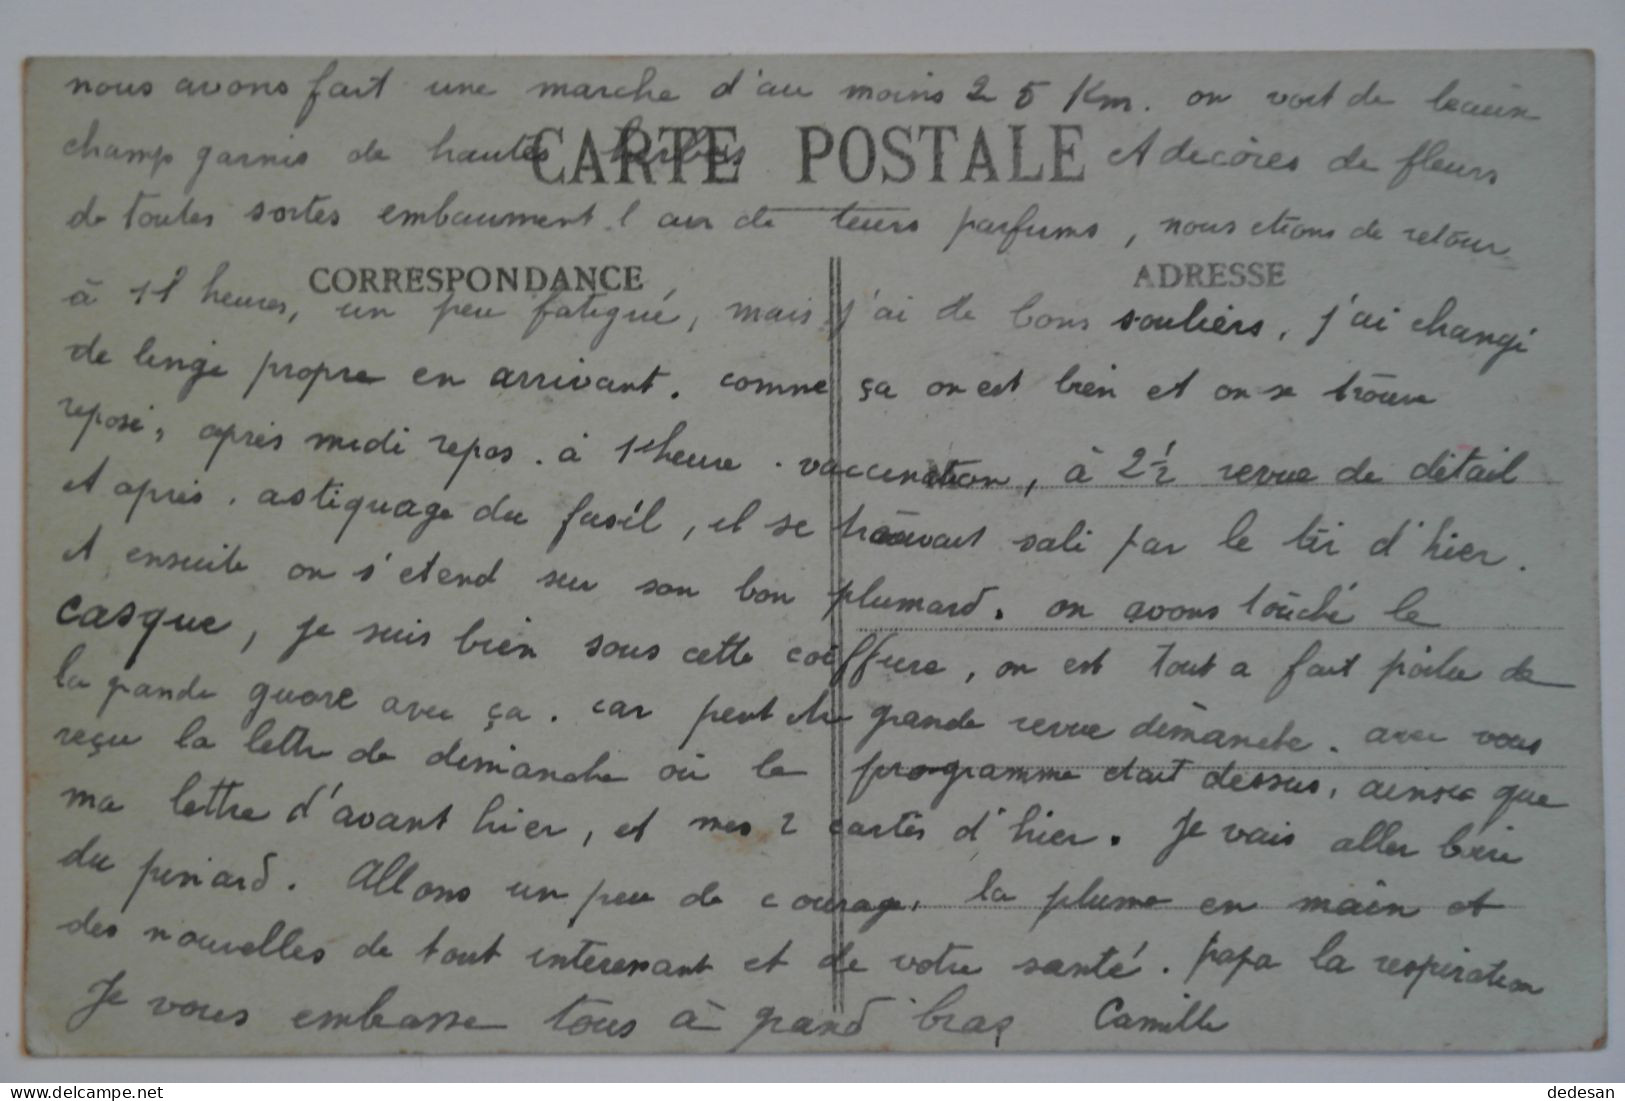 nous avons fait une marche d'au moins 25 Km. on voit de beaux
CARTE POSTALE
champ garnis de hautes herbes et decòres de fleurs
de toutes sortes embaument l'air de leurs parfums, nous etions de retour
CORRESPONDANCE
ADRESSE
à 11 heures, un peu fatigué, mais j'ai de bons souliers, j'ai changé
de linge propre en arrivant. comme ça on est bien et on se trouve
reposé, après midi repos. à 1 heure. vaccination, à 2 ½ revue de détail
et après. astiquage du fusil, il se trouvait sali par le tir d'hier.
et ensuite on s'etend sur son bon plumard. on avons touché le
casque, je suis bien sous cette coiffure, on est tout a fait poilu de
la grande guere avec ça. car peut etre grande revue dimanche. avez vous
reçu la lettre de dimanche où le programme etait dessus, ainsi que
ma lettre d'avant hier, et mes 2 cartes d'hier. Je vais aller boire
du pinard. Allons un peu de courage, la plume en main et
des nouvelles de tout interessant et de votre santé. papa la respiration
Je vous embrasse tous à grand bras Camille
dedesan
© www.delcampe.net